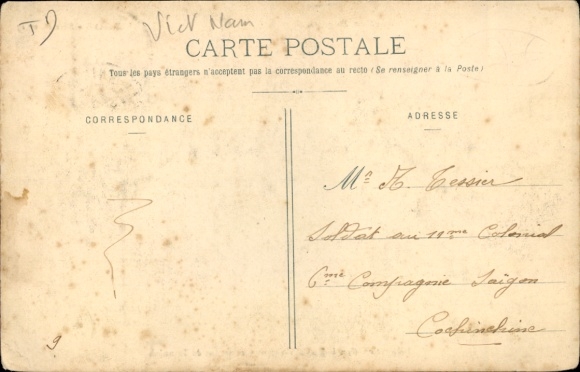 Viet Nam
CARTE POSTALE
Tous les pays étrangers n'acceptent pas la correspondance au recto (Se renseigner à la Poste)
CORRESPONDANCE
ADRESSE
Mr A. Tessier
Soldat au 11me Colonial
6me Compagnie Saïgon
Cochinchine
9